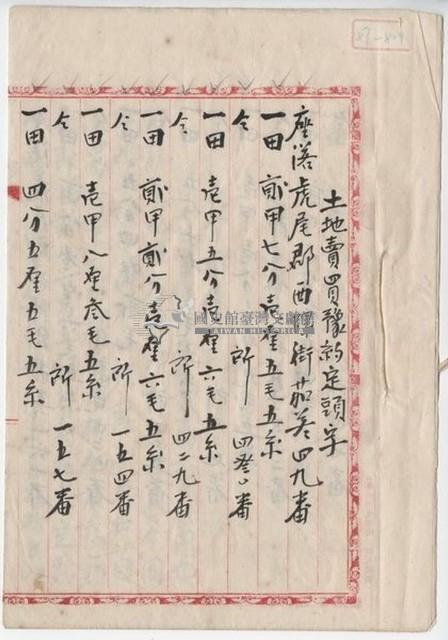 土地賣買豫約定頭字
座落虎尾郡西街茄四九番
一田 貳甲七分壹厘五毛五糸
仝 所 四參〇番
一田 壹甲五分壹厘六毛五糸
仝 所 四二九番
一田 貳甲貳分壹厘六毛五糸
仝 所 一五四番
一田 壹甲八厘叁毛五糸
仝 所 一五七番
一田 四分五厘五毛五糸
國史館臺灣文獻館
TAIWAN HISTORICA